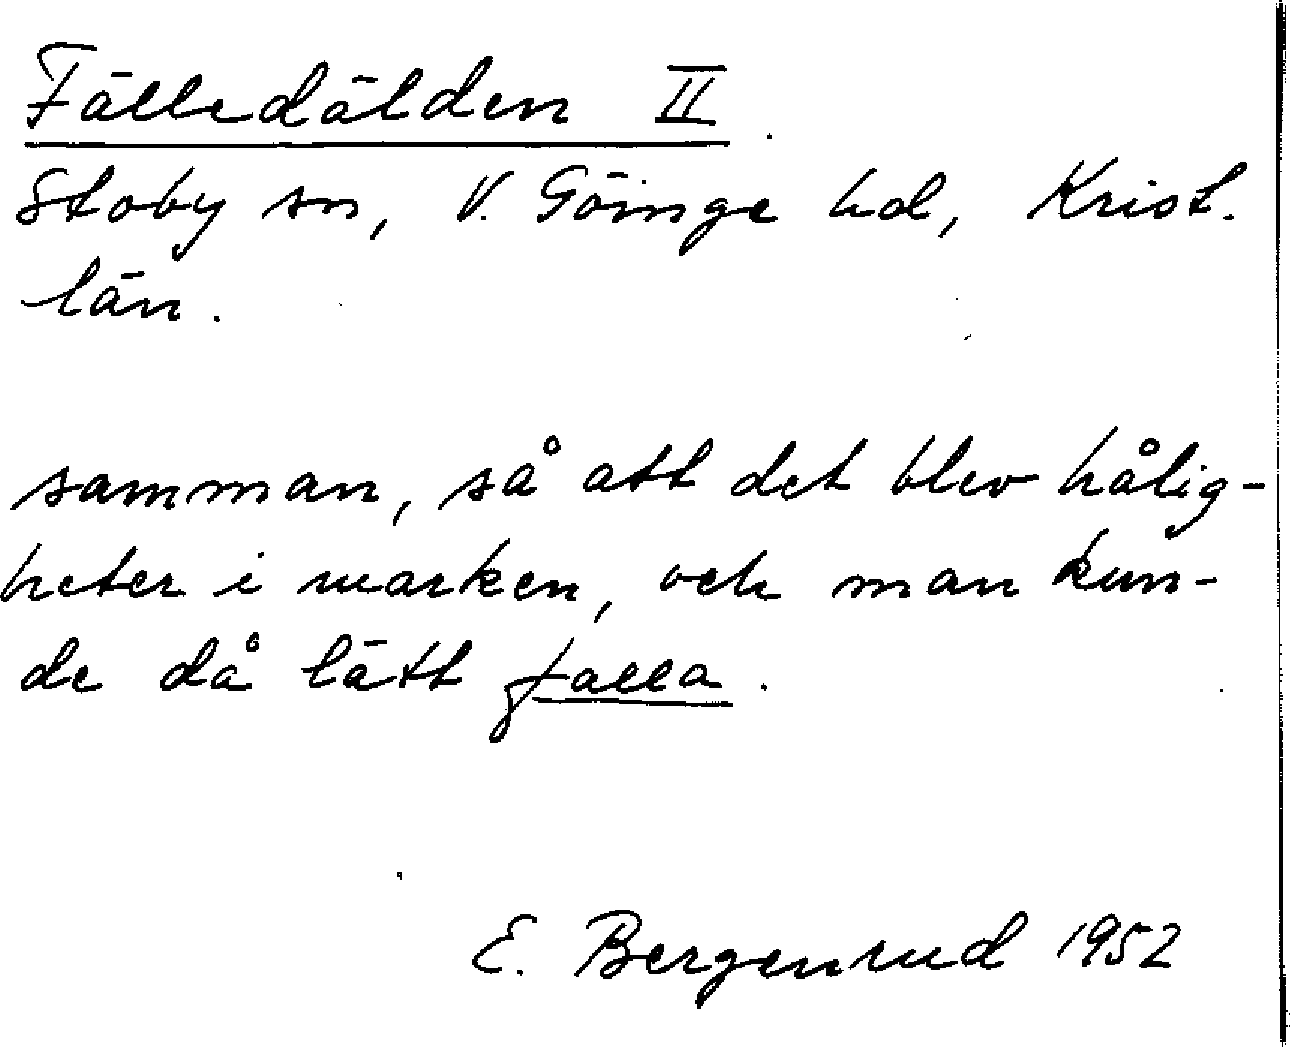 Fälledälden II
Stoby sn, V. Göinge hd, Krist.
län.
samman, så att det blev hålig-
heter i marken, och man kun-
de då lätt falla.
E. Bergenrud 1952